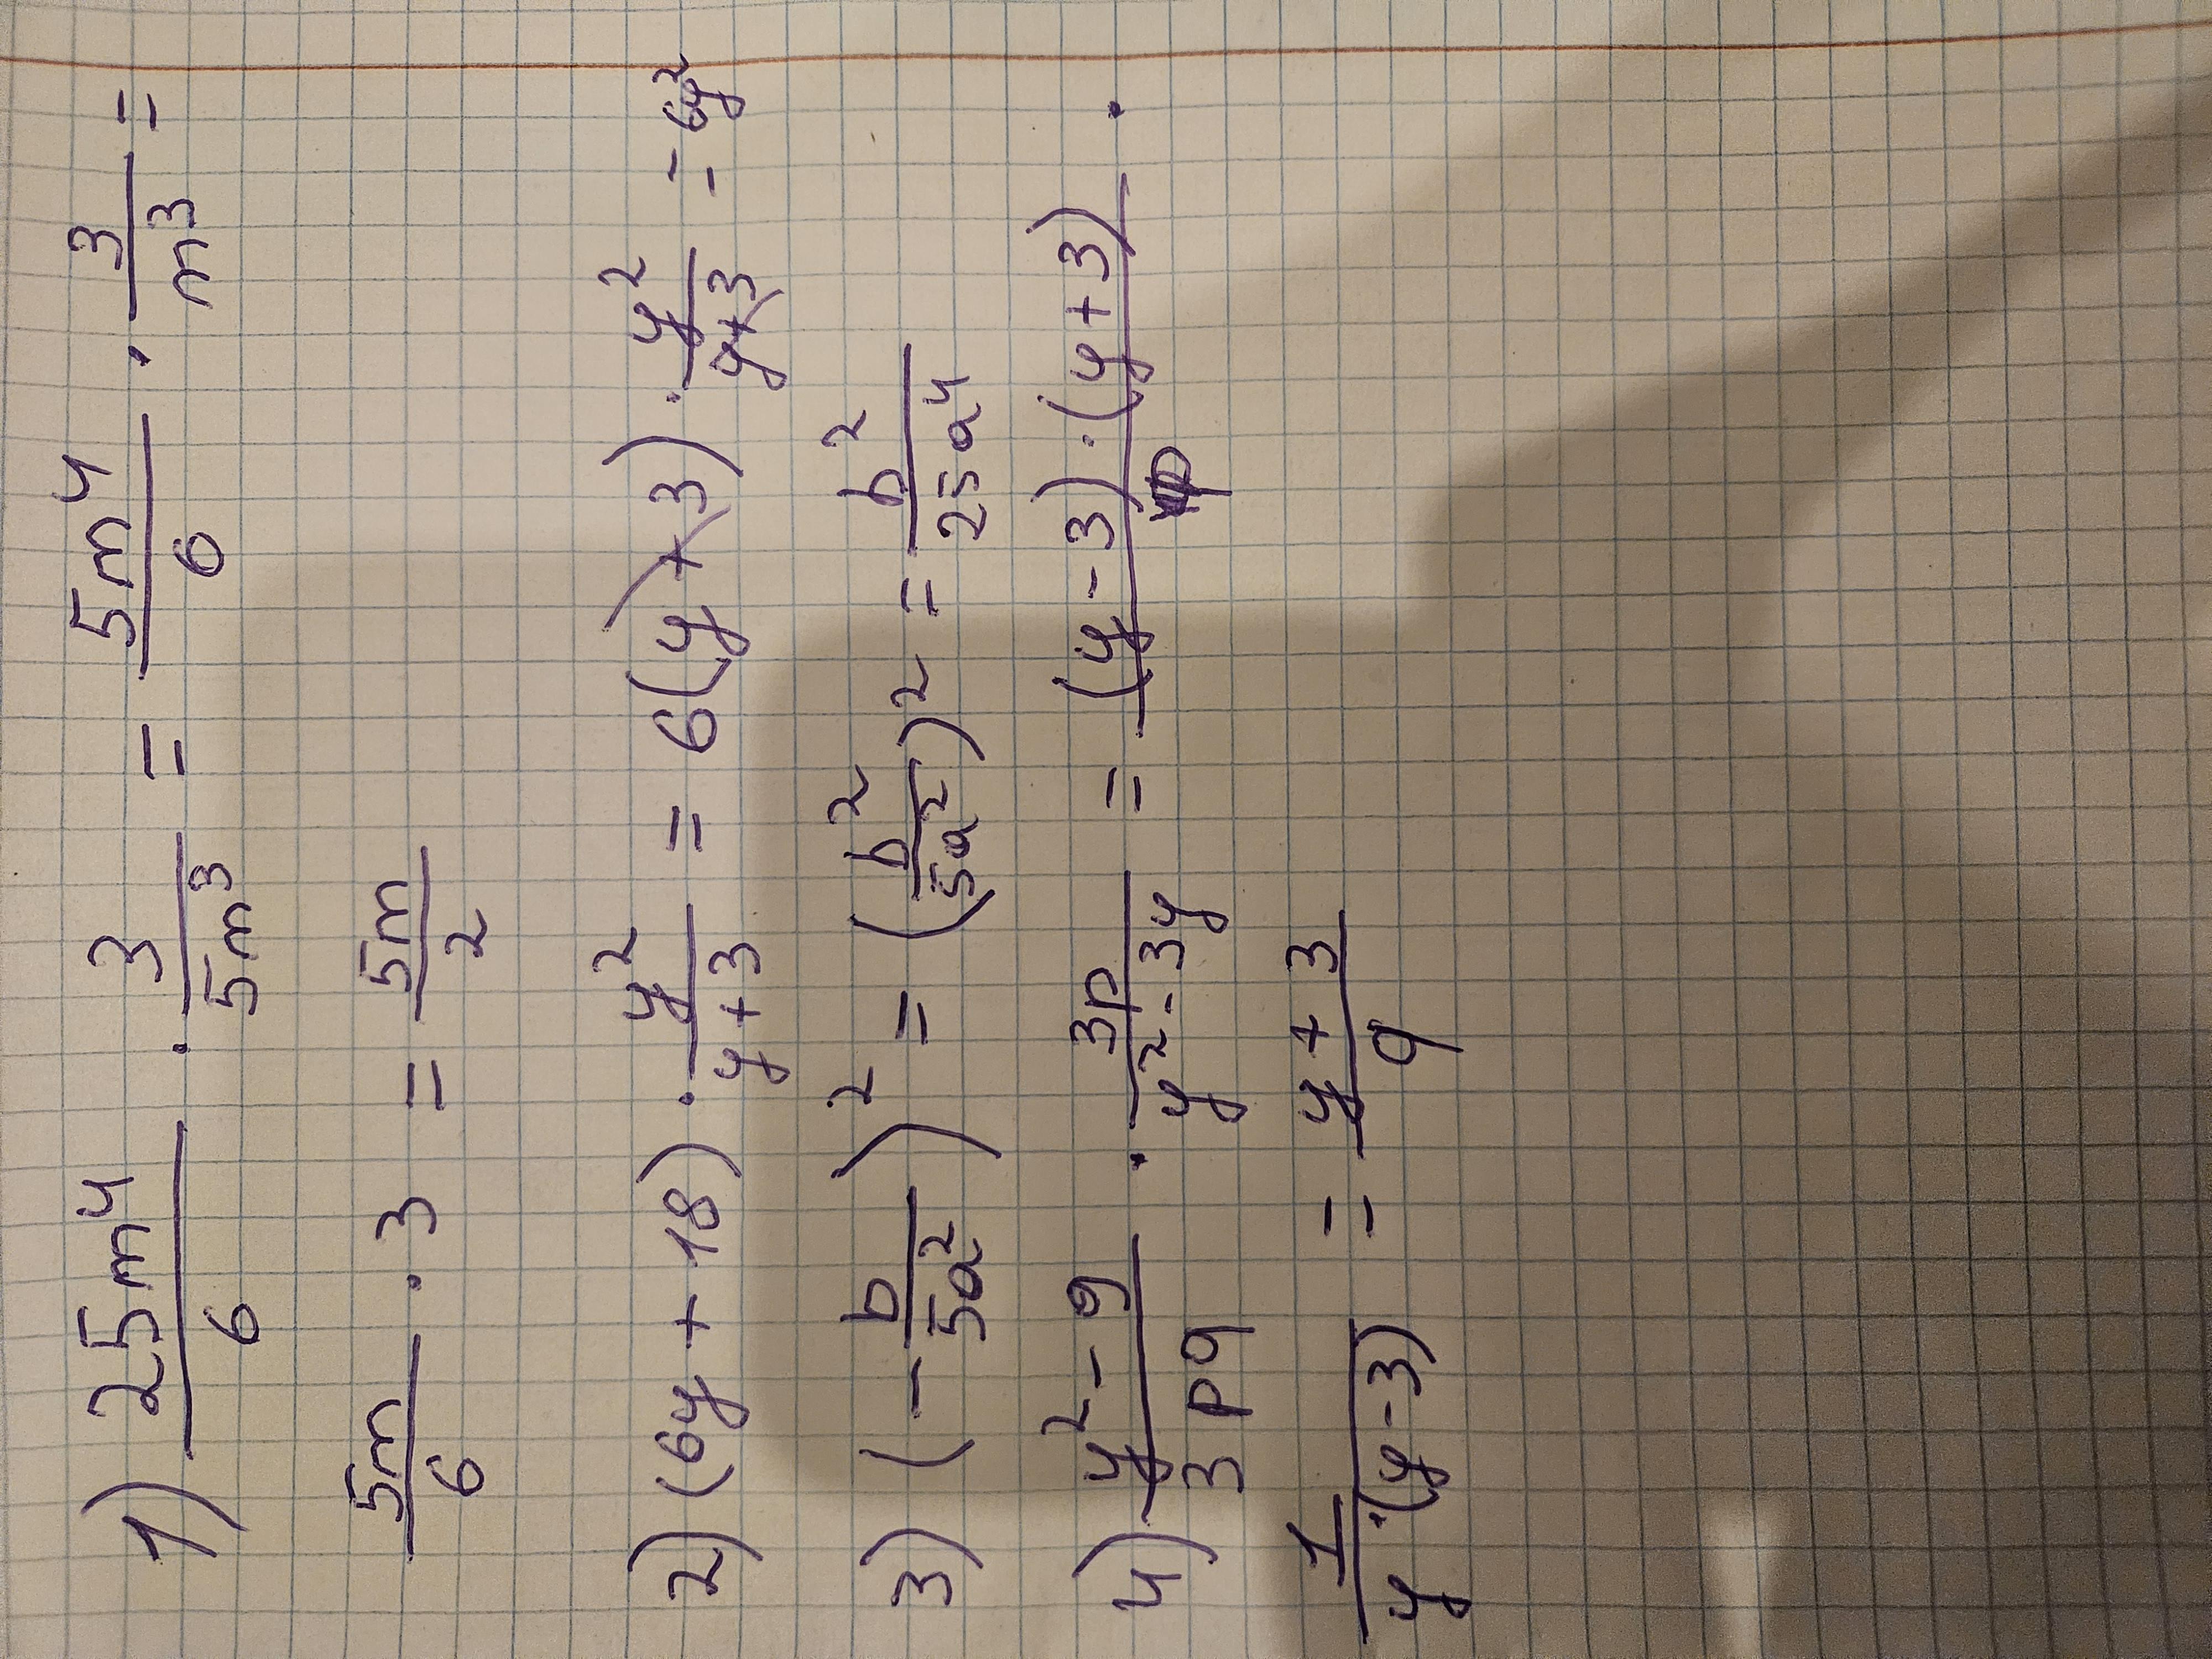 1) 25m⁴/6 · 3/5m³ = 5m⁴/6 · 3/m³ =
5m/6 · 3 = 5m/2
2) (6y + 18) · y²/y+3 = 6(y+3) · y²/y+3 = 6y²
3) (-b/5a²)² = (b²/5a²)² = b²/25a⁴
4) y²-9/3pq · 3p/y²-3y = (y-3)·(y+3)/p ·
1/y·(y-3) = y+3/q